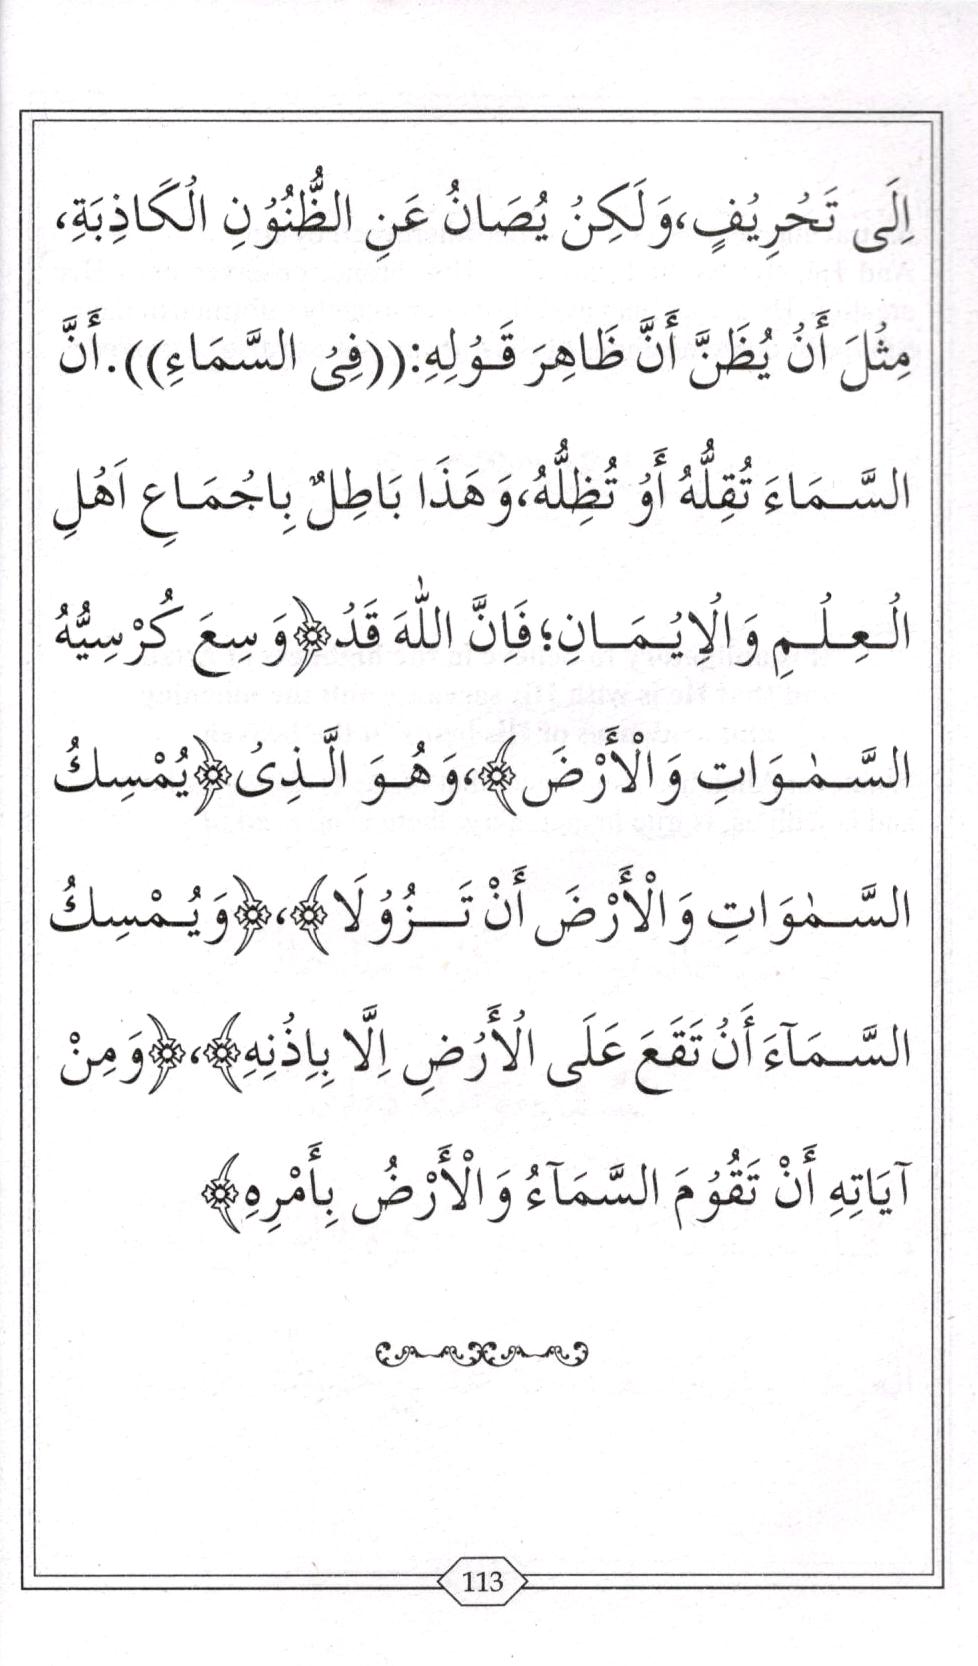 اِلَى تَحْرِيْفٍ،وَلَكِنْ يُصَانُ عَنِ الظُّنُوْنِ الْكَاذِبَةِ،
مِثْلَ أَنْ يُظَنَّ أَنَّ ظَاهِرَ قَوْلِهِ:((فِيْ السَّمَاءِ)).أَنَّ
السَّمَاءَ تُقِلُّهُ أَوْ تُظِلُّهُ،وَهَذَا بَاطِلٌ بِاجْمَاعِ اَهْلِ
الْعِلْمِ وَالْاِيْمَانِ؛فَاِنَّ اللّٰهَ قَدْ﴿وَسِعَ كُرْسِيُّهُ
السَّمٰوَاتِ وَالْأَرْضَ﴾،وَهُوَ الَّذِيْ﴿يُمْسِكُ
السَّمٰوَاتِ وَالْأَرْضَ أَنْ تَزُوْلَا﴾،﴿وَيُمْسِكُ
السَّمَآءَ أَنْ تَقَعَ عَلَى الْأَرْضِ اِلَّا بِاِذْنِهِ﴾،﴿وَمِنْ
آيَاتِهِ أَنْ تَقُوْمَ السَّمَآءُ وَالْأَرْضُ بِأَمْرِهِ﴾
113